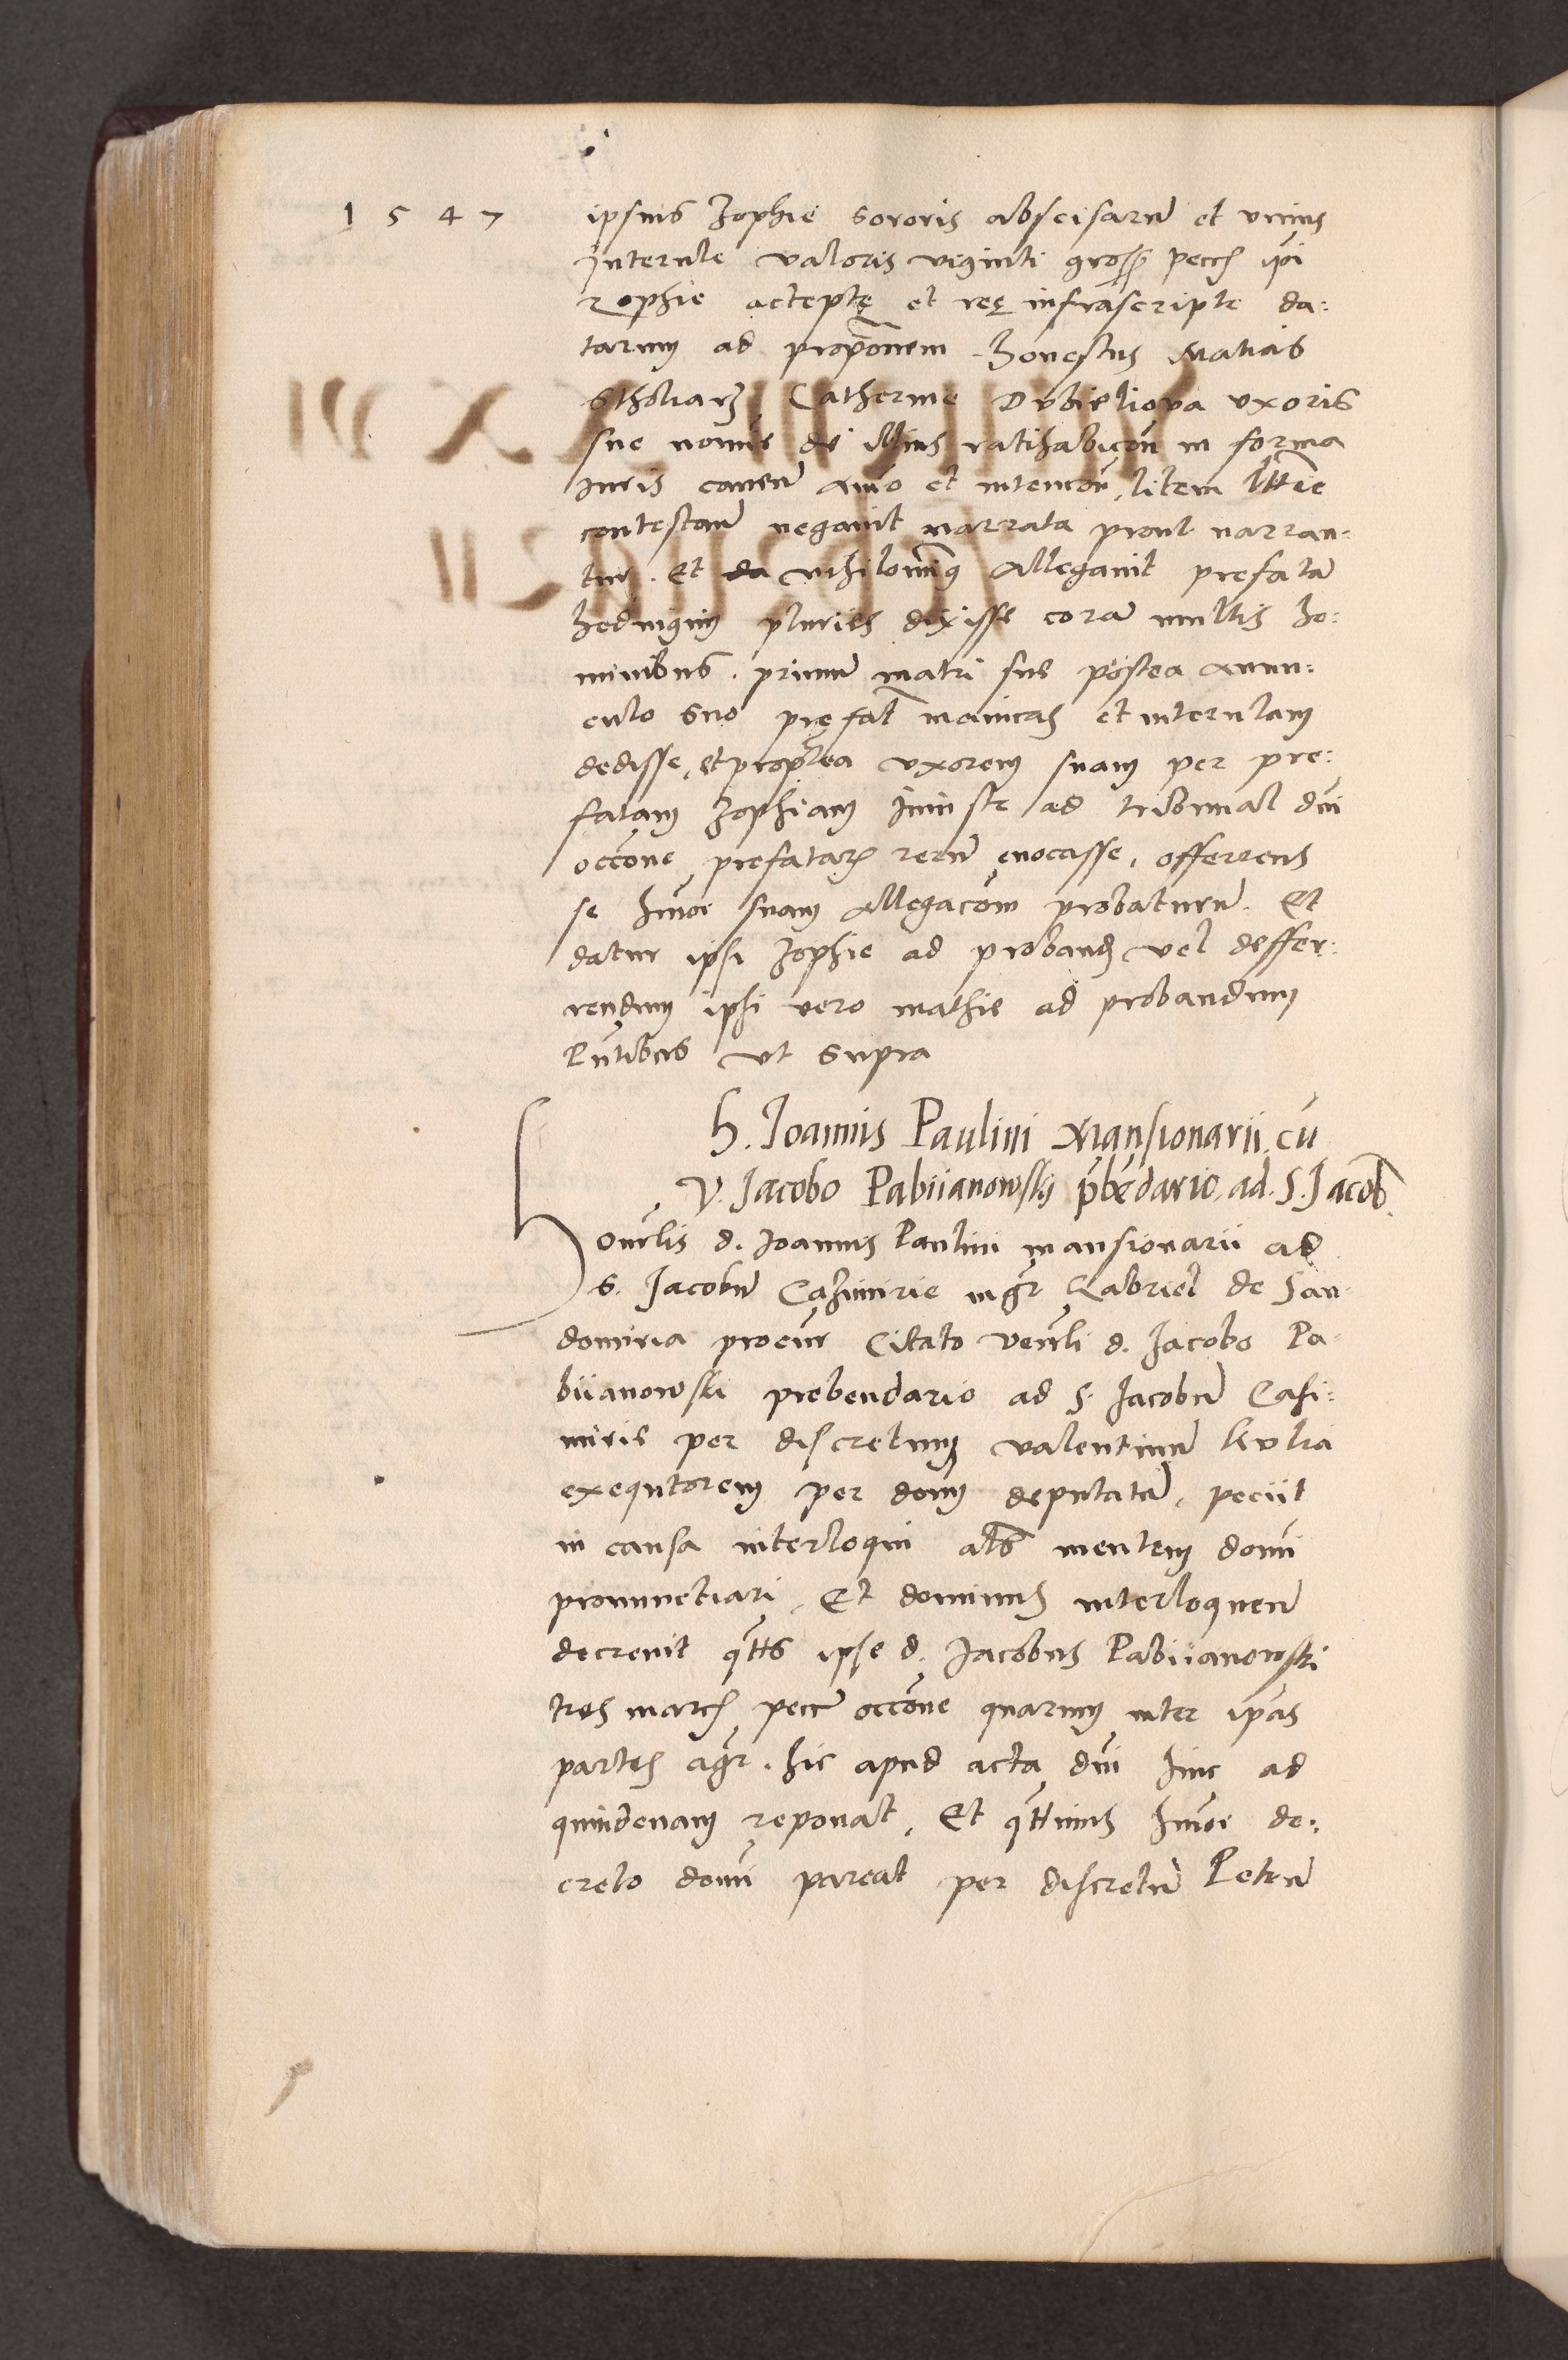 1547
ipsius Zophie sororis abscisarũ et unius
interule valoris viginti gross pecc ipi
Zophie accepte et ree infrascripte da:
tarum ad propõnem honestus Matias
Stholiarz Catherine Dubieliova uxoris
sue noĩe de illius ratihabicõn in forma
iuris caveñ animo et intencõn litem
contestañ negavit narrata prout narran:
tur. Et da nihilominq allegavit prefatã
hedvigim pluries dixisse corã multis ho:
minibus. primũ matri sue postea avun:
culo suo prefat manicas et interulam
dedisse, et propterea uxorem suam per pre:
fatam Zophiam iniuste ad tribunal dni
occone prefatarz rerũ evocasse, offerrens
se hmõi suam allegacõm probaturũ. Et
datur ipsi Zophie ad proband vel deffer:
rendum ipsi vero Mathie ad probandum
Pñtibus ut supra
H. Joannis Paulini Mansionarii cũ
V. Jacobo Pabiianowskij pbẽdario ad. S. Jacob
Honrlis d. Joannis Paulini mansionarii ad
S. Jacobũ Cazimirie mgr Gabriel de San
domiria procur Citato venrli d. Jacobo Pa
biianowski prebendario ad S. Jacobũ Casi:
mirie per discretum valentinũ Kulia
exequtorem per domum deputatũ, peciit
in causa interloqui als mentem domi
pronunctiari, Et dominus interloqueñ
decrevit qtts ipse d. Jacobus Pabiianowski
tres marcs pecc occone quarum inter ipas
partes agr. hic apud acta dni hinc ad
quindenam reponat, Et qttinus hmõi de:
creto domi pareat per discretũ Petrũ